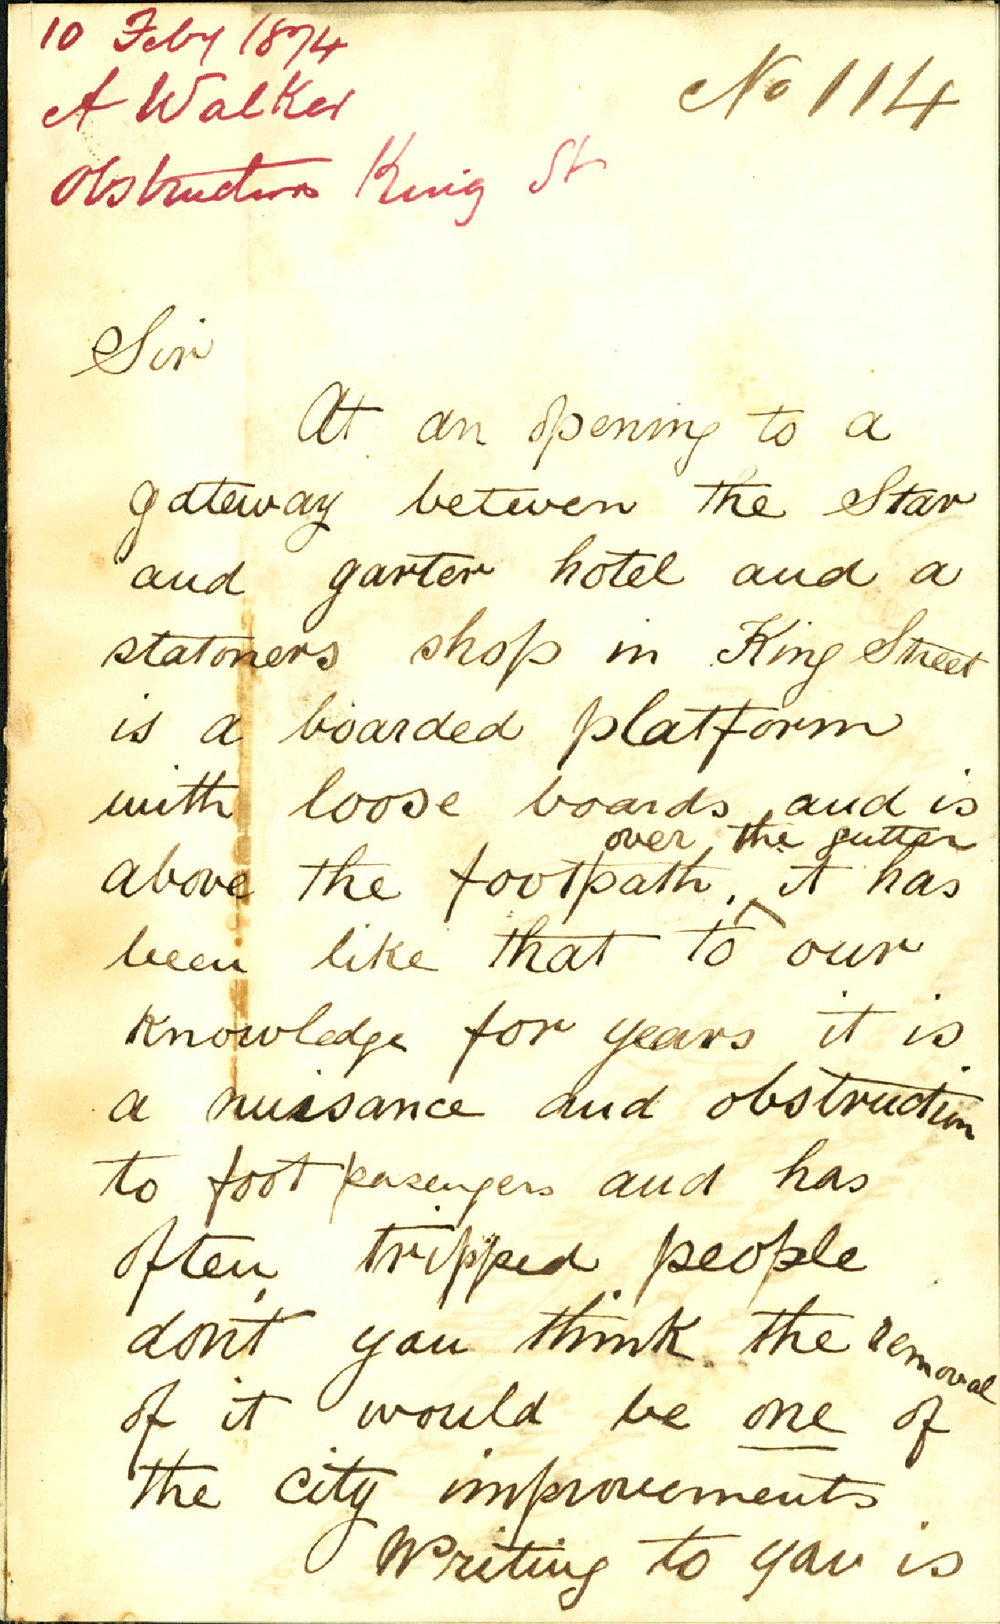 10 Feby 1874
A Walker
Obstruction King St
No 114
Sir
At an opening to a
gateway between the Star
and garter hotel and a
statoners shop in King Street
is a boarded platform
with loose boards and is
over the gutter
above the footpath, it has
been like that to our
knowledge for years it is
a nuisance and obstruction
to foot pasengers and has
often tripped people
dont you think the removal
of it would be one of
the city improvements
Writing to you is